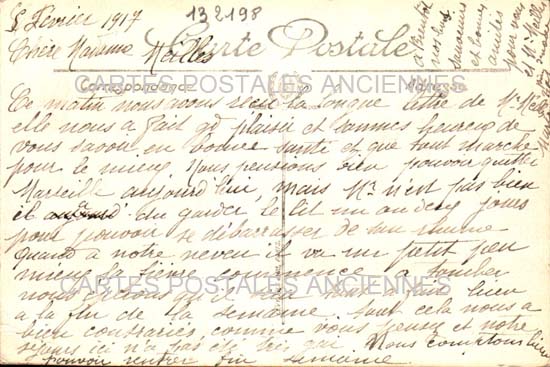 5 Février 1917
132198
Chère Madame Mailles
Carte Postale
CARTES POSTALES ANCIENNES
Correspondance
Adresse
Ce matin nous avons reçu la longue lettre de Mr
elle nous a fait gd plaisir et sommes heureux de
vous savoir en bonne santé et que tout marche
pour le mieux Nous pensions bien pouvoir quitter
Marseille aujourd'hui, mais Mr n'est pas bien
et a du garder le lit un ou deux jours
pour pouvoir se débarrasser de son rhume
quand a notre neveu il va un petit peu
mieux la fièvre commence a tomber
nous croyons qu'il sera tout a fait bien
CARTES POSTALES ANCIENNES
a la fin de la semaine. tout cela nous a
bien contrariés comme vous pensez et notre
séjour ici n'a pas été très gai Nous comptons bien
pouvoir rentrer fin semaine
a bientôt
vos
et bonnes
amitiés
pour vous
et Mr Mailles